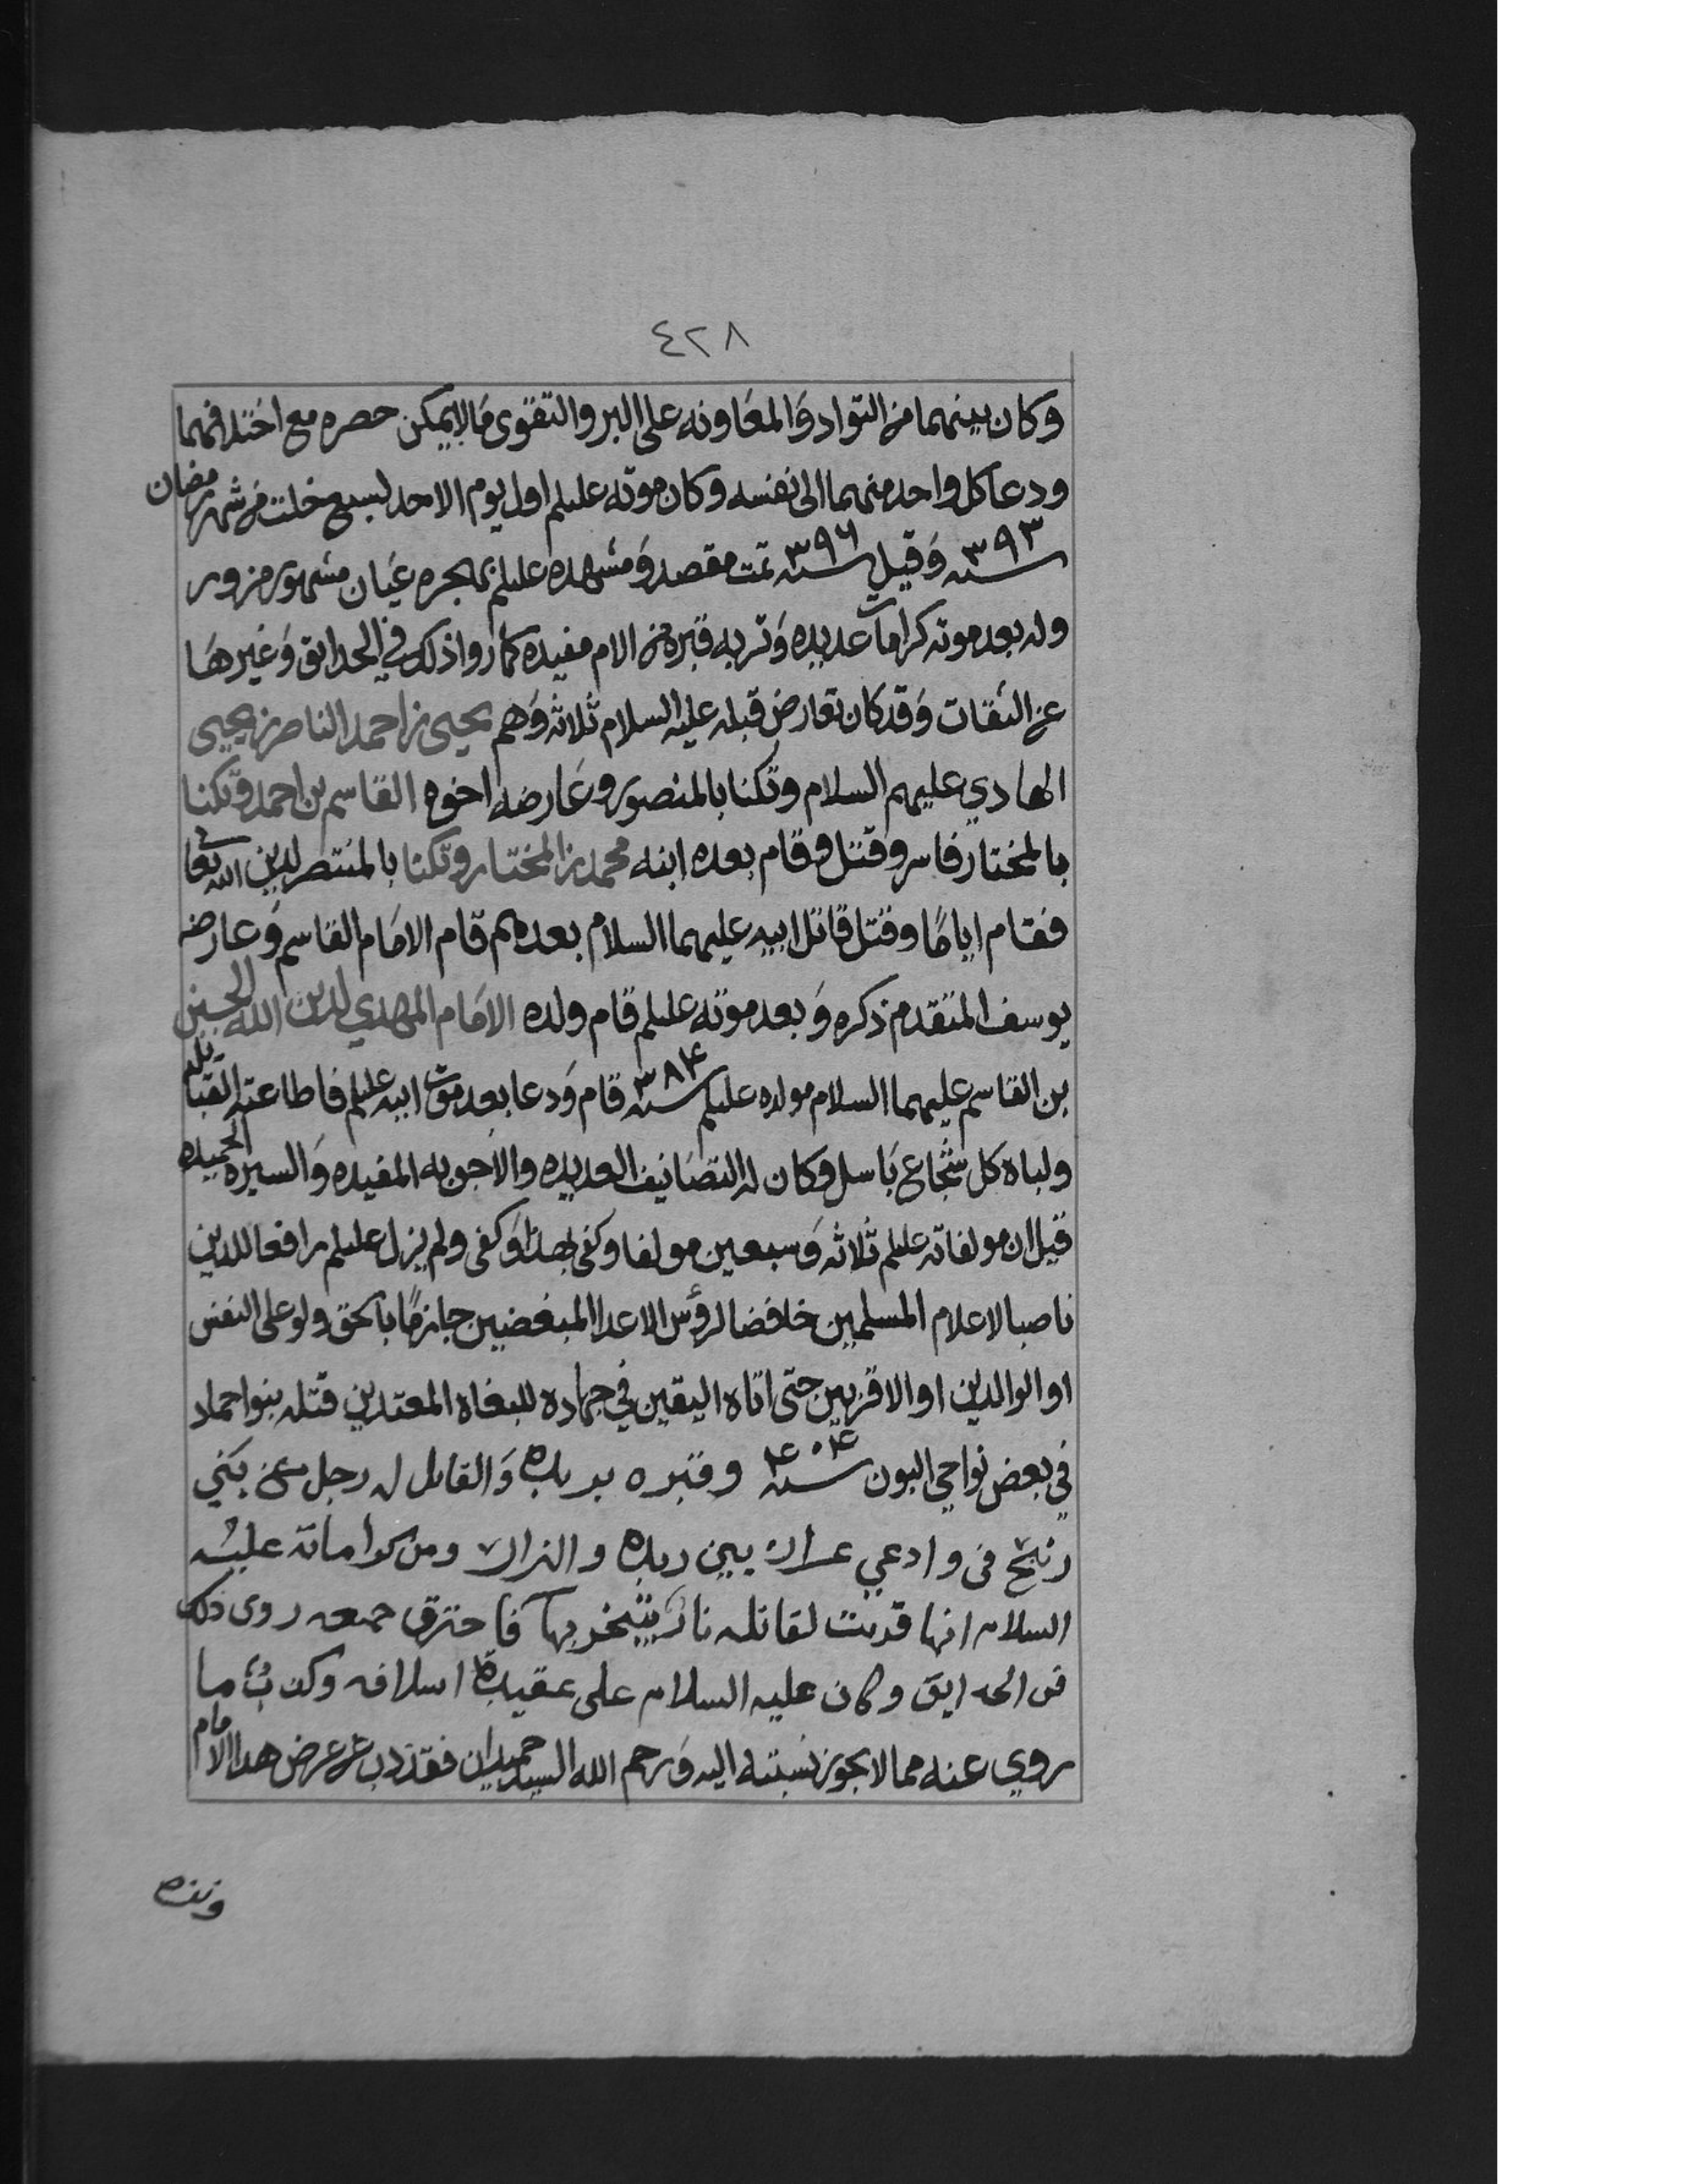 ٤٢٨
وكان بينهما من التواد والمعاونه على البر والتقوى مالايمكن حصره مع اختلافهما
ودعا كل واحد منهما الى نفسه وكان موته عليلم اول يوم الاحد لسبع خلت من شهر رمضان
سنه ٣٩٣ وقيل سنه ٣٩٦ تمت مقصد ومشهده عليلم بهجره عيان مشهور مزور
وله بعد موته كرامات عديده وتربه قبره من الام مفيده كما رواذلك في الحدايق وغيرها
عن الثقات وقد كان تعارض قبله عليه السلام ثلاثه وهم يحيى بن احمد الناصر بن يحيى
الهادي عليهم السلام وتكنا بالمنصور وعارضه اخوه القاسم بن احمد وتكنا
بالمختار فاسر وقتل وقام بعده ابنه محمد بن المختار وتكنا بالمنتصر لدين الله تعا
فقام اياما وقتل قاتل ابيه عليهما السلام بعدهم قام الامام القاسم وعارضه
يوسف المتقدم ذكره وبعد موته عليلم قام ولده الامام المهدي لدين الله الحسين
بن القاسم عليهما السلام مولده عليلم سنه ٣٨٤ قام ودعا بعد موت ابيه عليلم فاطاعته القبايل
ولباه كل شجاع باسل وكان له التصانيف العديده والاجوبه المفيده والسيره الحميده
قيل ان مولفاته عليلم ثلاثه وسبعين مولفا وكفى بهذا وكفى ولم يزل عليلم رافعا للدين
ناصبا لاعلام المسلمين خافضا لرؤس الاعدا المبغضين جازما بالحق ولو على النفس
او الوالدين او الاقربين حتى اتاه اليقين في جهاده للبغاه المعتدين قتله بنوا حماد
في بعض نواحي البون سنه ٤٠٤ وقبره بريده والقاتل له رجل من بني
زنيح في وادعي عرار بين ريده و ومن كراماته عليه
السلام انها قدمت لقاتله نار يتبخر بها فاحترق جمعه روى ذلك
في الحدايق وكان عليه السلام على عقيدة اسلافه وكذب ما
روي عنه مما لا يجوز نسبته اليه ورحم الله السيد حميدان فقد ذب عن عرض هذا الامام
ونزه